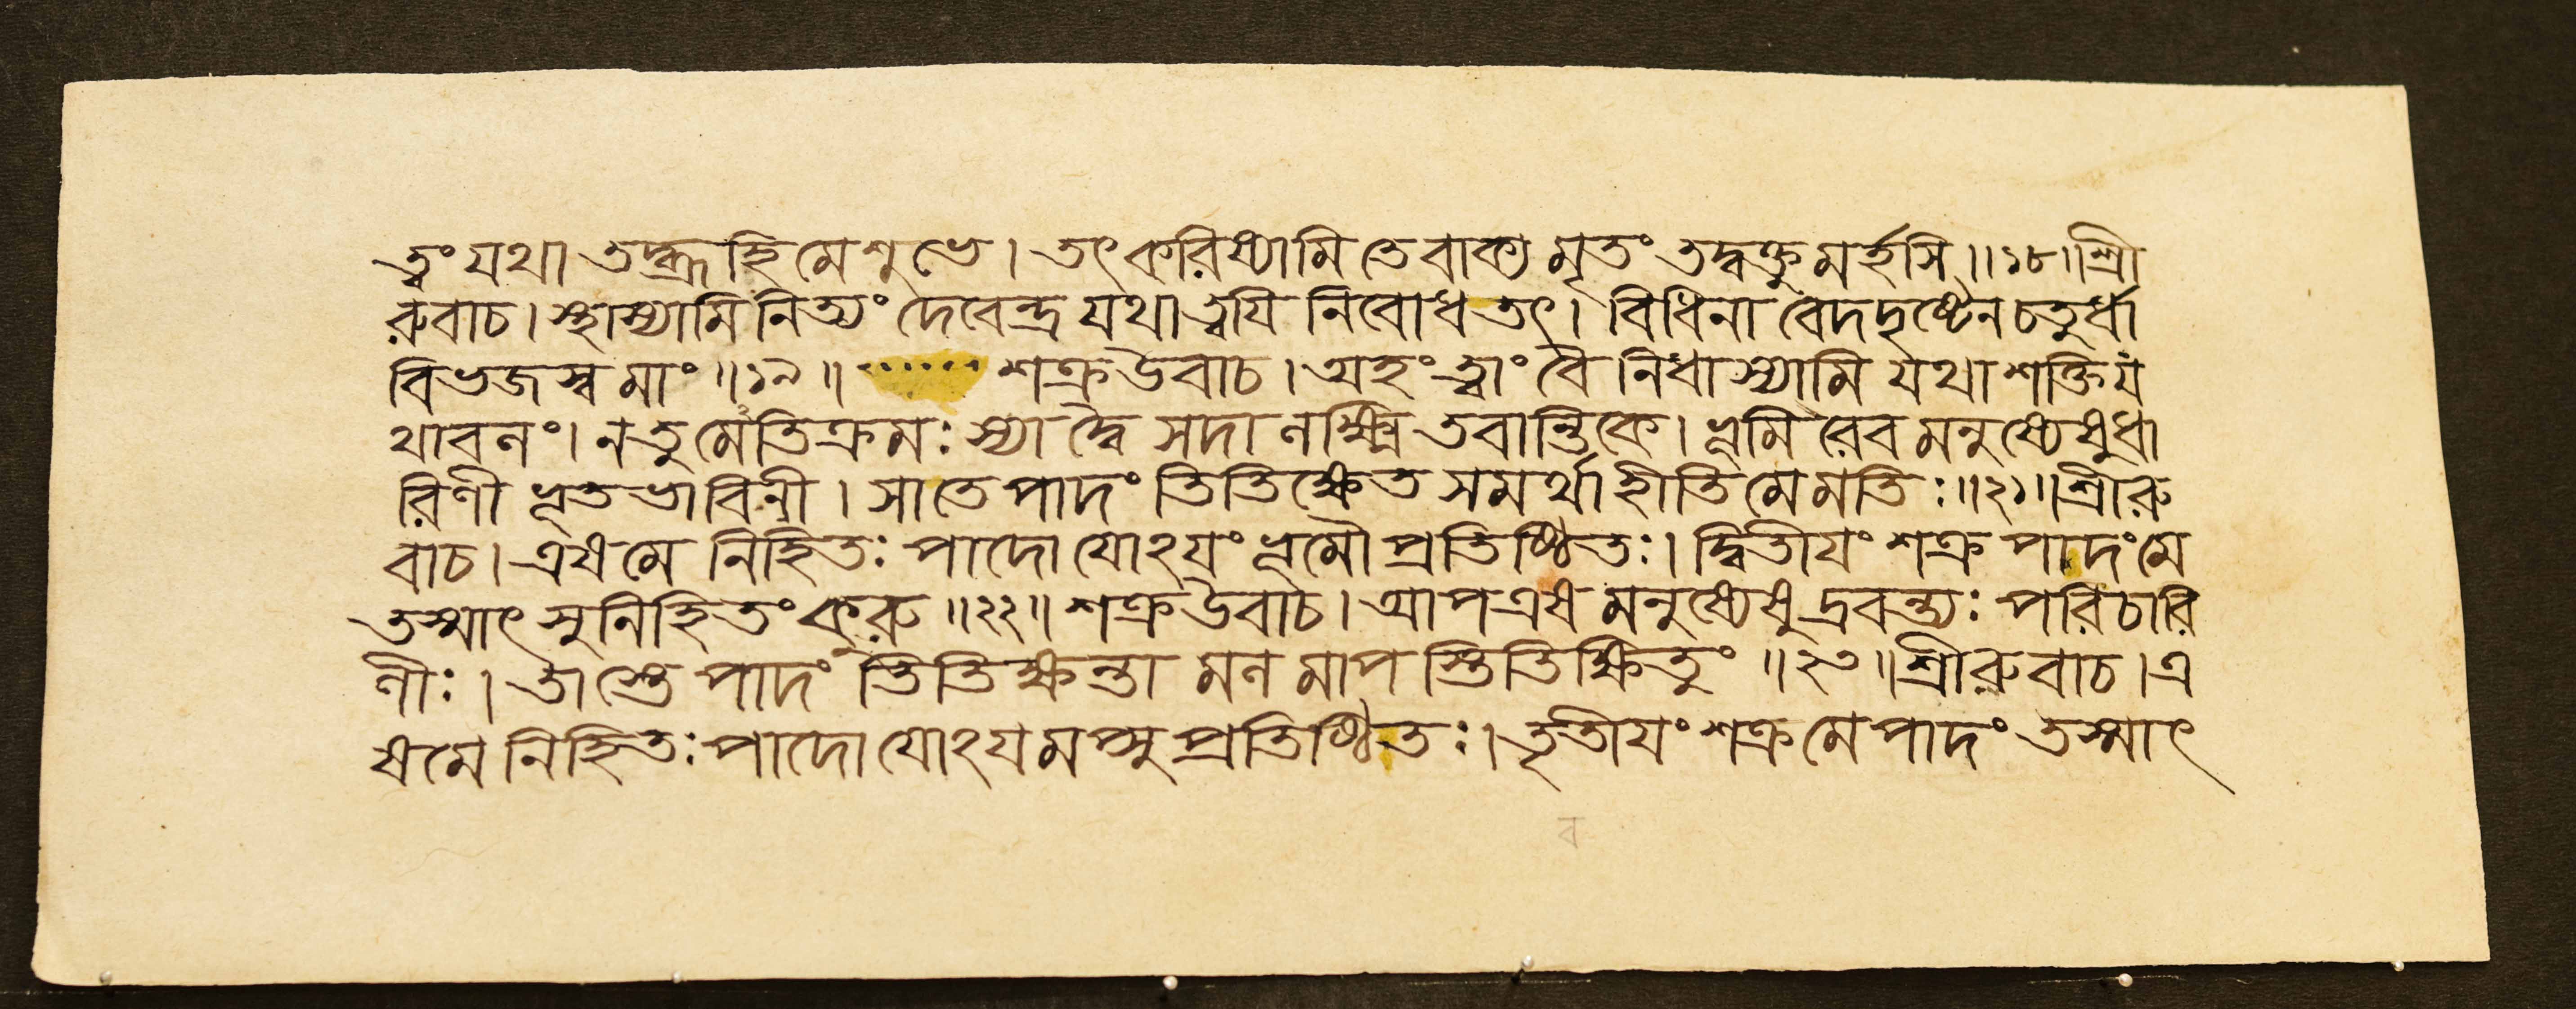 ত্বং যথা তদ্ব্রূহি মে শুভে। তৎ করিষ্যামি তে বাক্য মৃতং তদ্বক্তু মর্হসি॥১৮॥শ্রী
রুবাচ। স্থাস্যামি নিত্যং দেবেন্দ্র যথা ত্বযি নিবোধ তৎ। বিধিনা বেদদৃষ্টেন চতুর্ধা
বিভজস্ব মাং॥১৯॥ শক্র উবাচ। অহং ত্বাং বৈ নিধাস্যামি যথাশক্তি য
থাবলং। ন তু মেঽতিক্রমঃ স্যাদ্বৈ সদা লক্ষ্মি তবান্তিকে। ভূমিরেব মনুষ্যেষু ধা
রিণী ভূতভাবিনী। সা তে পাদং তিতিক্ষেত সমর্থা হীতি মে মতিঃ॥২১॥শ্রীরু
বাচ। এষ মে নিহিতঃ পাদো যোঽযং ভূমৌ প্রতিষ্ঠিতঃ। দ্বিতীযং শক্র পাদং মে
তস্মাৎ সুনিহিতং কুরু॥২২॥ শক্র উবাচ। আপ এষ মনুষ্যেষু দ্রবন্ত্যঃ পরিচারি
ণীঃ। তাস্তে পাদং তিতিক্ষন্তা মলমাপস্তিতিক্ষিতুং॥২৩॥শ্রীরুবাচ। এ
ষ মে নিহিতঃ পাদো যোঽযমপ্সু প্রতিষ্ঠিতঃ। তৃতীযং শক্র মে পাদং তস্মাৎ
ব